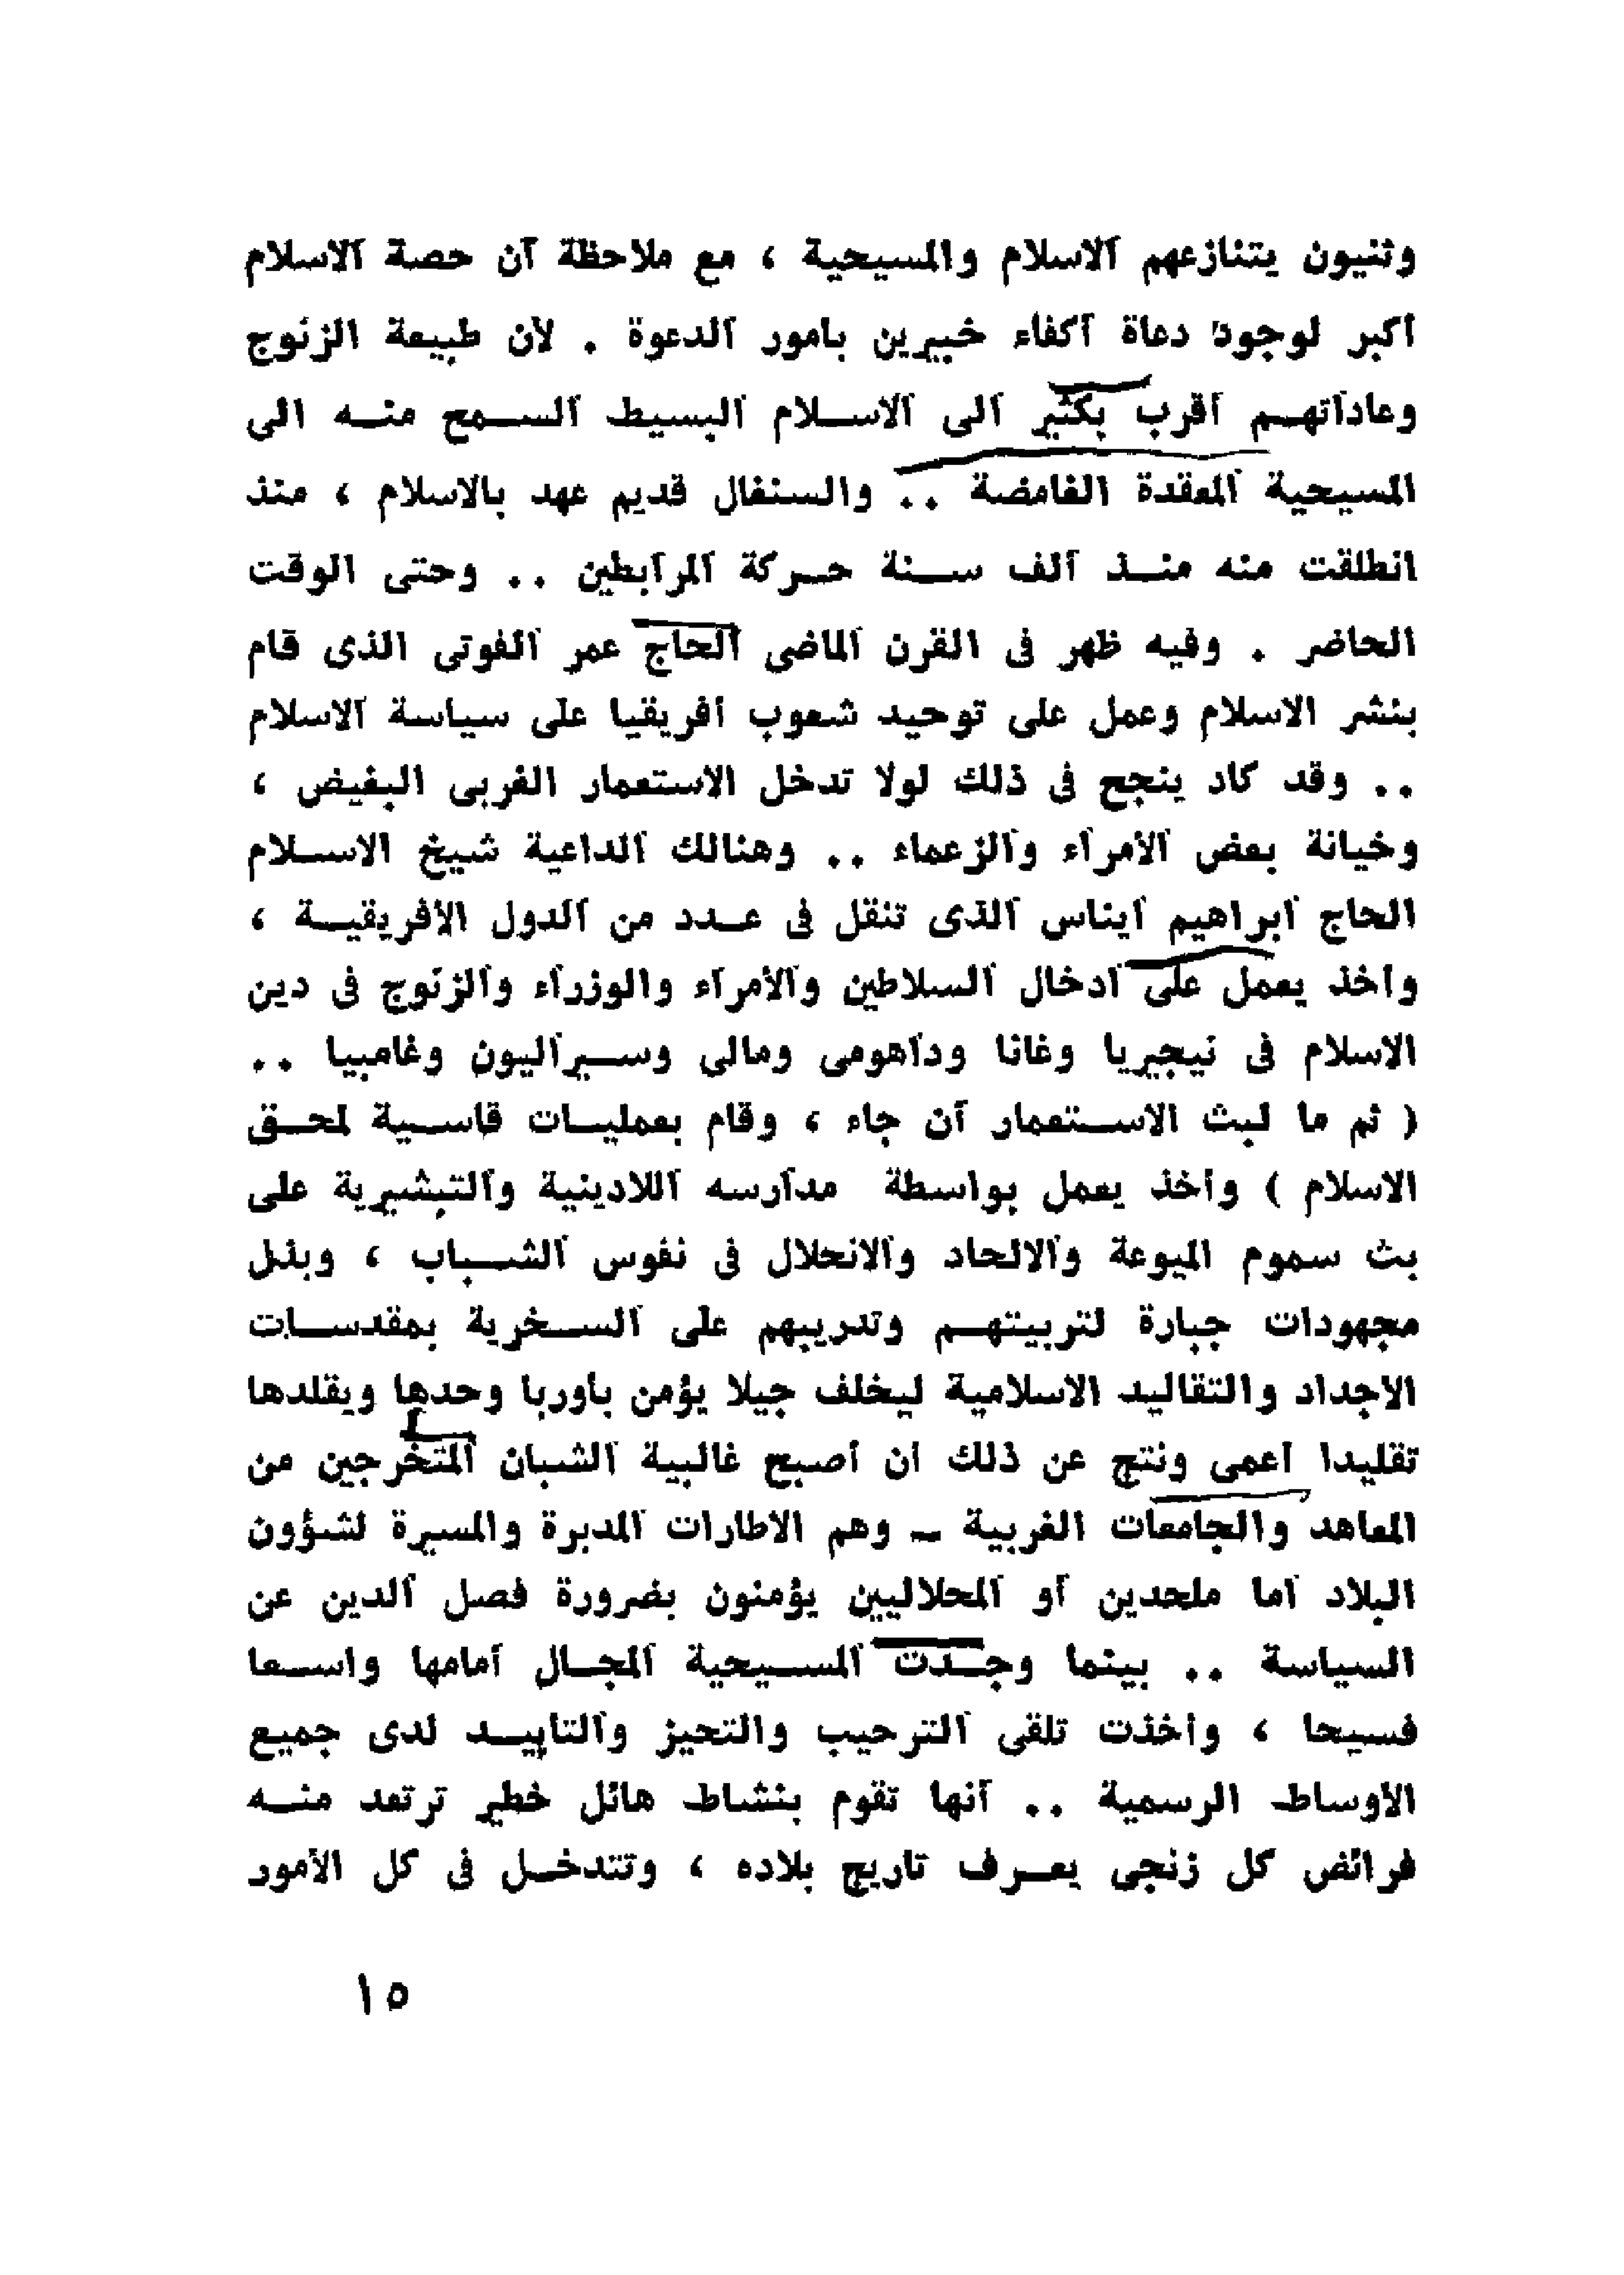 وثنيون يتنازعهم الاسلام والمسيحية ، مع ملاحظة أن حصة الاسلام
أكبر لوجود دعاة أكفاء خبيرين بأمور الدعوة . لأن طبيعة الزنوج
وعاداتهم أقرب بكثير الى الاسلام البسيط السمح منه الى
المسيحية المعقدة الغامضة .. والسنغال قديم عهد بالاسلام ، منذ
انطلقت منه منذ ألف سنة حركة المرابطين .. وحتى الوقت
الحاضر . وفيه ظهر فى القرن الماضى الحاج عمر الفوتى الذى قام
بنشر الاسلام وعمل على توحيد شعوب أفريقيا على سياسة الاسلام
.. وقد كاد ينجح فى ذلك لولا تدخل الاستعمار الغربى البغيض ،
وخيانة بعض الأمراء والزعماء .. وهنالك الداعية شيخ الاسلام
الحاج ابراهيم ايناس الذى تنقل فى عدد من الدول الأفريقية ،
وأخذ يعمل على ادخال السلاطين والأمراء والوزراء والزنوج فى دين
الاسلام فى نيجيريا وغانا وداهومى ومالى وسيراليون وغامبيا ..
( ثم ما لبث الاستعمار أن جاء ، وقام بعمليات قاسية لمحق
الاسلام ) وأخذ يعمل بواسطة مدارسه اللادينية والتبشيرية على
بث سموم الميوعة والالحاد والانحلال فى نفوس الشباب ، وبذل
مجهودات جبارة لتربيتهم وتدريبهم على السخرية بمقدسات
الاجداد والتقاليد الاسلامية ليخلف جيلا يؤمن بأوربا وحدها ويقلدها
تقليدا أعمى ونتج عن ذلك ان أصبح غالبية الشبان المتخرجين من
المعاهد والجامعات الغربية – وهم الاطارات المدبرة والمسيرة لشؤون
البلاد اما ملحدين أو المحلاليين يؤمنون بضرورة فصل الدين عن
السياسة .. بينما وجدت المسيحية المجال أمامها واسعا
فسيحا ، وأخذت تلقى الترحيب والتحيز والتاييد لدى جميع
الأوساط الرسمية .. أنها تقوم بنشاط هائل خطير ترتعد منه
فرائض كل زنجى يعرف تاريج بلاده ، وتتدخل فى كل الأمور
١٥